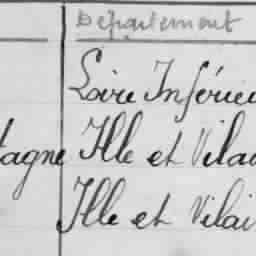 Département
Loire Inférieu
tagne Ille et Vilai
Ille et Vilai